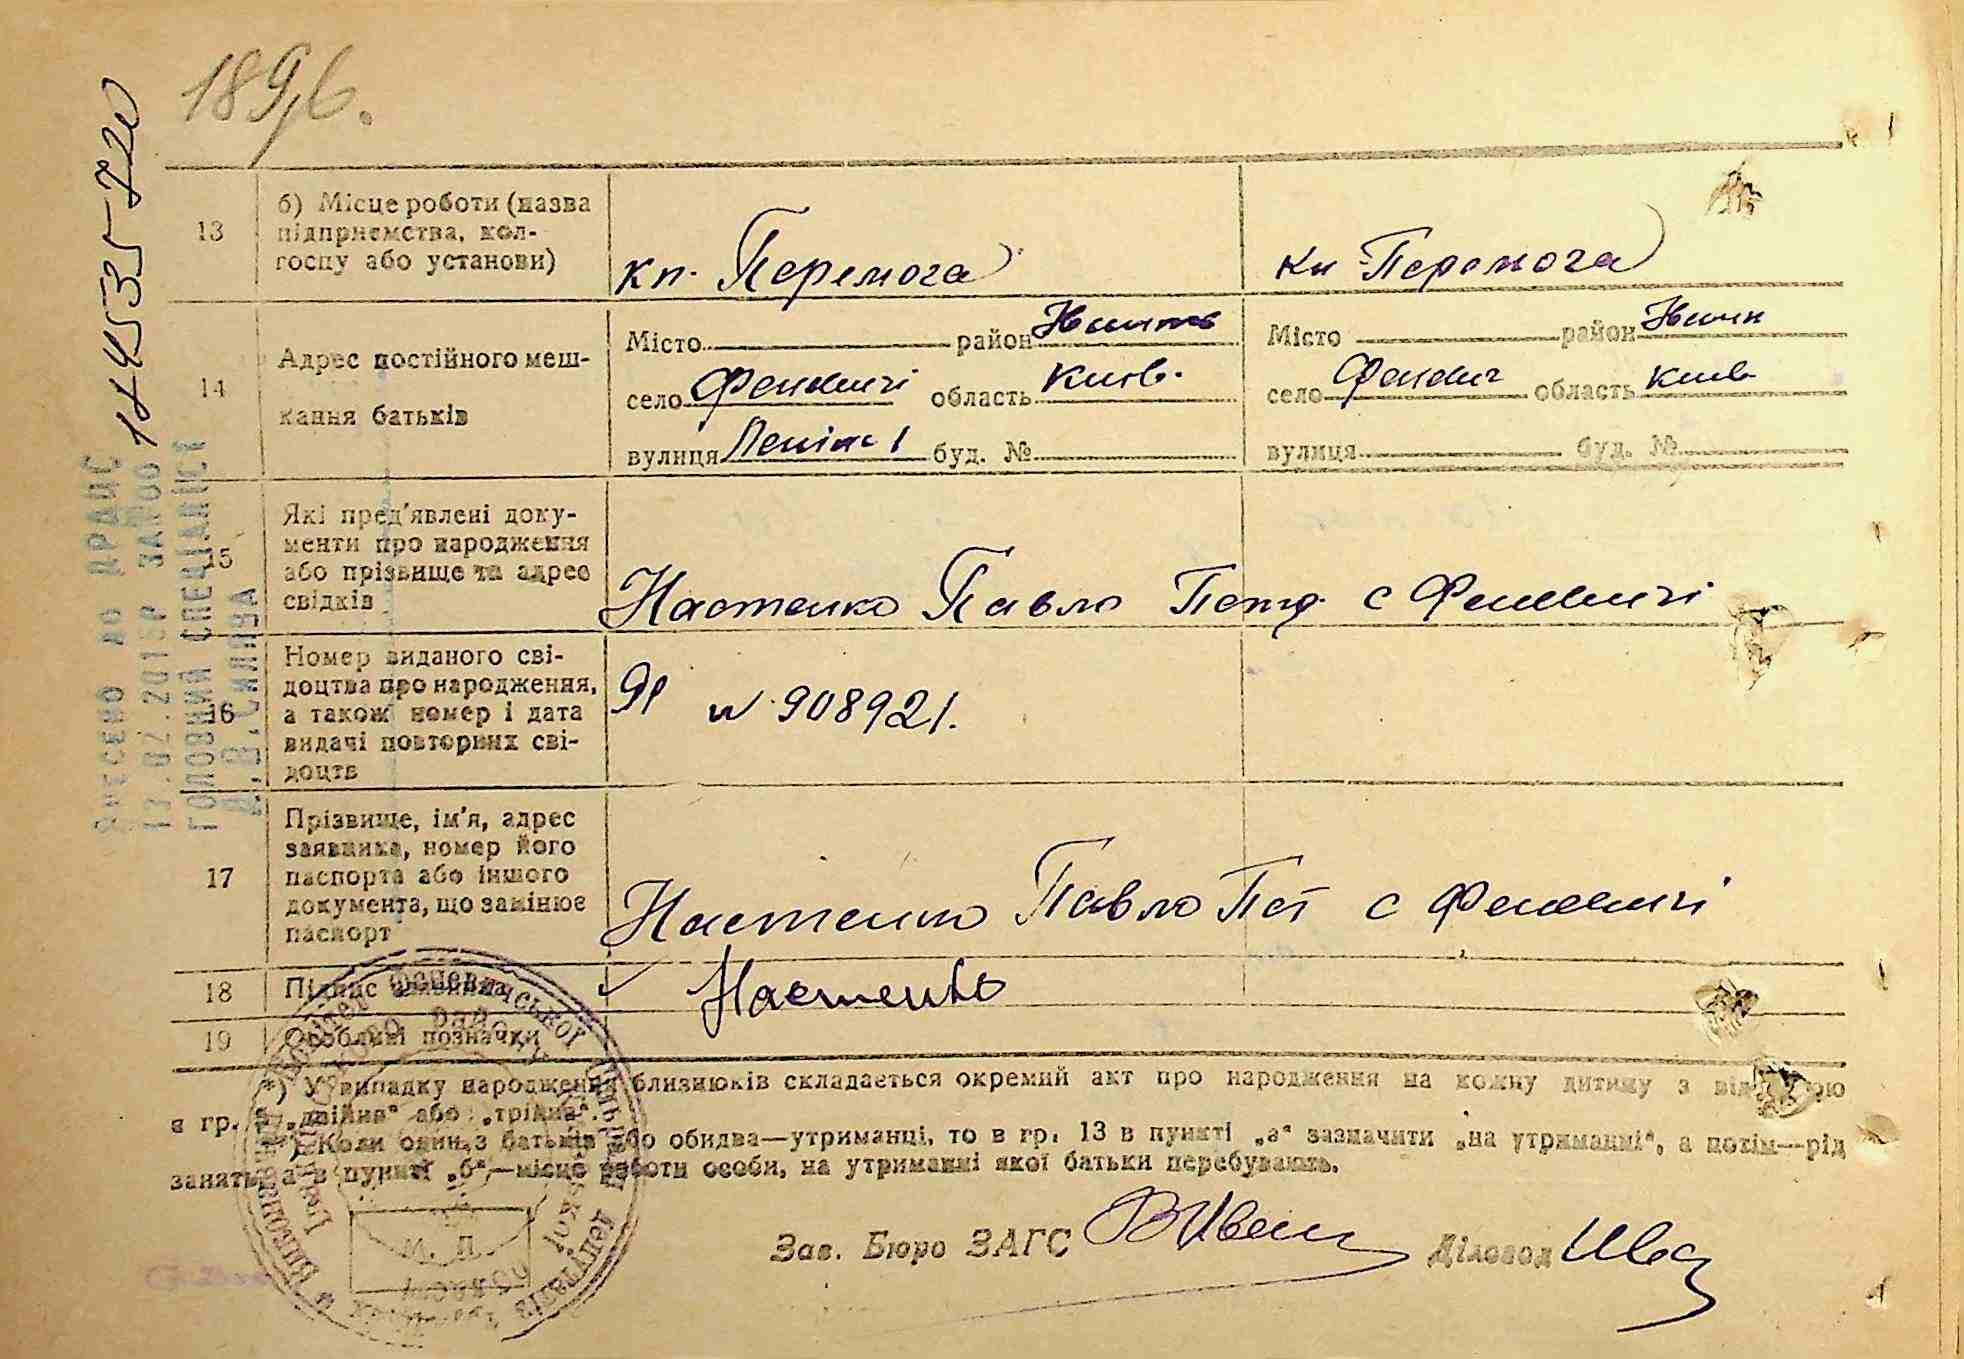 1896.
13
б) Місце роботи (назва
підприємства, кол-
госпу або установи)
кп. Перемога
кп. Перемога
14
Адрес постійного меш-
кання батьків
Місто район
село Феневичі область Київ.
вулиця Леніна 1 буд. №
Місто район
село Феневич область Київ
вулиця буд. №
15
Які пред'явлені доку-
менти про народження
або прізвище та адрес
свідків
Настенко Павло Петр. с Феневичі
16
Номер виданого сві-
доцтва про народження,
а також номер і дата
видачі повторних сві-
доцтв
N 908921.
17
Прізвище, ім'я, адрес
заявника, номер його
паспорта або іншого
документа, що замінює
паспорт
Настенко Павло Пет с Феневичі
18
Підпис заявника
Настенко
19
Особливі позначки
*) У випадку народження близнюків складається окремий акт про народження на кожну дитину з
в гр. „двійня" або „трійня".
Коли один з батьків або обидва—утриманці, то в гр. 13 в пункті „а" зазначити „на утриманні", а потім—рід
занять, а в пункті „б"—місце роботи особи, на утриманні якої батьки перебувають.
Зав. Бюро ЗАГС
Діловод
М. П.
Внесено до ДРАЦС
13.02.2015р
Головний спеціаліст